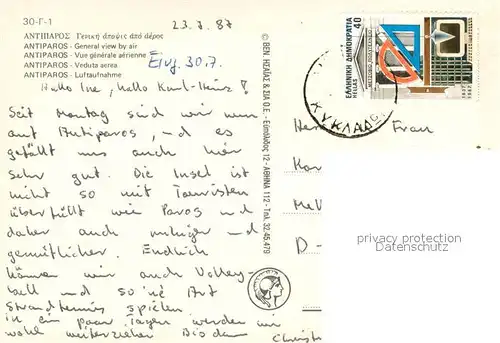 30-Γ-1
23.7.87
ΑΝΤΙΠΑΡΟΣ Γενική άποψις από αέρος
ANTIPAROS - General view by air
ANTIPAROS - Vue générale aérienne
ANTIPAROS - Veduta aerea
ANTIPAROS - Luftaufnahme
Eing. 30.7.
Hallo Ine, hallo Karl-Heinz!
Seit Montag sind wir nun
auf Antiparos, und es
gefällt uns auch hier
sehr gut. Die Insel ist
nicht so mit Touristen
überfüllt wie Paros und
daher auch ruhiger und
gemütlicher. Endlich
können wir auch Volley-
ball und so 'ne Art
Strandtennis spielen.
in ein paar Tagen werden wir
wohl weiterziehen Bis dann
Christ
© BEN. ΗΣΑΪΑΣ & ΣΙΑ Ο.Ε. - Εϋπόλιδος 12 - ΑΘΗΝΑ 112 - Τηλ. 32.45.479
ΕΛΛΗΝΙΚΗ ΔΗΜΟΚΡΑΤΙΑ
HELLAS
40
ΜΕΤΣΟΒΙΟ ΠΟΛΥΤΕΧΝΕΙΟ
ΚΥΚΛΑΔΩΝ
Frau
D-
privacy protection
Datenschutz